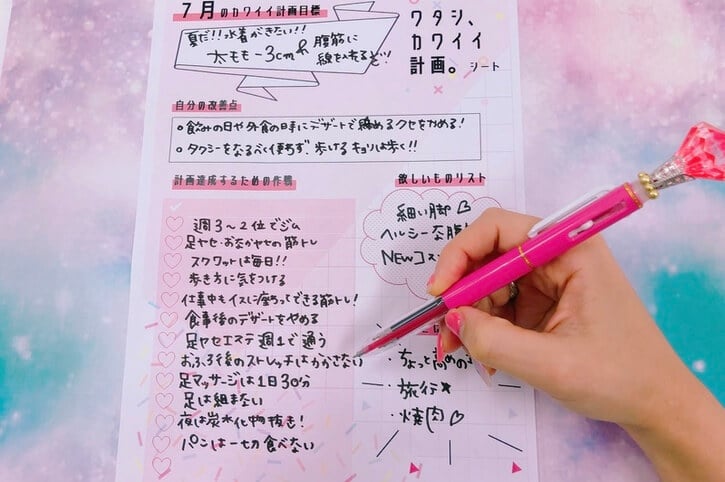 7月のカワイイ計画目標
夏だ!!水着がきたい!!
太もも-3cm & 腹筋に
線を入れるぞ!
ワタシ、
カワイイ
計画。シート
自分の改善点
飲みの日や外食の日手にデザートで締めるクセをやめる!
タクシーをなるべく使わず、歩ける キョリは歩く!!
計画達成するための作戦
週3〜2位でジム
足ヤセ・おなかヤセの筋トレ
スクワットは毎日!!
歩き方に気をつける
仕事中もイスに座ってできる筋トレ!
食事後のデザートをやめる
足ヤセエステ 週1で通う
おふろ後のストレッチはかかさない
足マッサージは1日30分
足は組まない
夜は炭水化物抜き!
パンは一切食べない
欲しいものリスト
細い脚♡
ヘルシーな腹
NEWコス
・ちょっと高めの
・旅行★
・焼肉♡